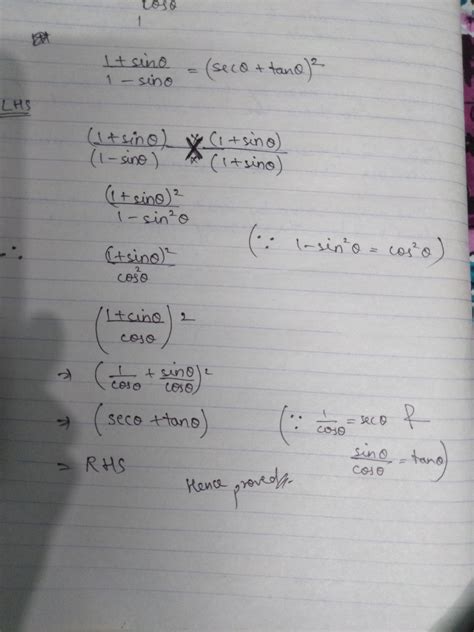 cosθ
1
1+sinθ / 1-sinθ = (secθ + tanθ)²
LHS
(1+sinθ) / (1-sinθ) × (1+sinθ) / (1+sinθ)
(1+sinθ)² / 1-sin²θ
(∵ 1-sin²θ = cos²θ)
∴ (1+sinθ)² / cos²θ
(1+sinθ / cosθ)²
→ (1/cosθ + sinθ/cosθ)²
→ (secθ + tanθ) (∵ 1/cosθ = secθ &
sinθ/cosθ = tanθ)
= RHS
Hence proved